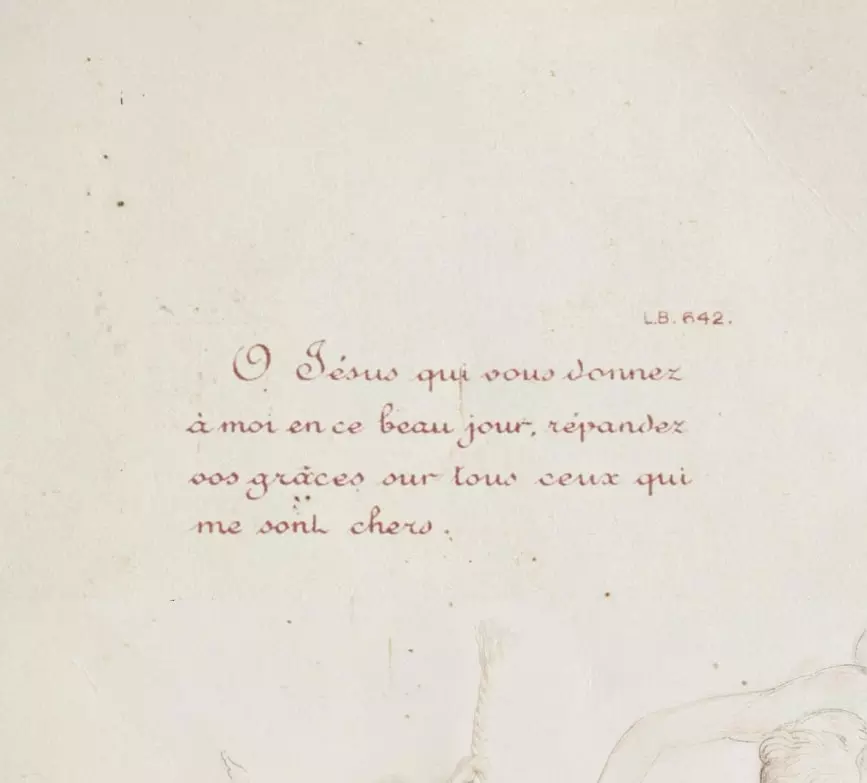 L.B. 642.
O Jésus qui vous donnez
à moi en ce beau jour, répandez
vos grâces sur tous ceux qui
me sont chers.